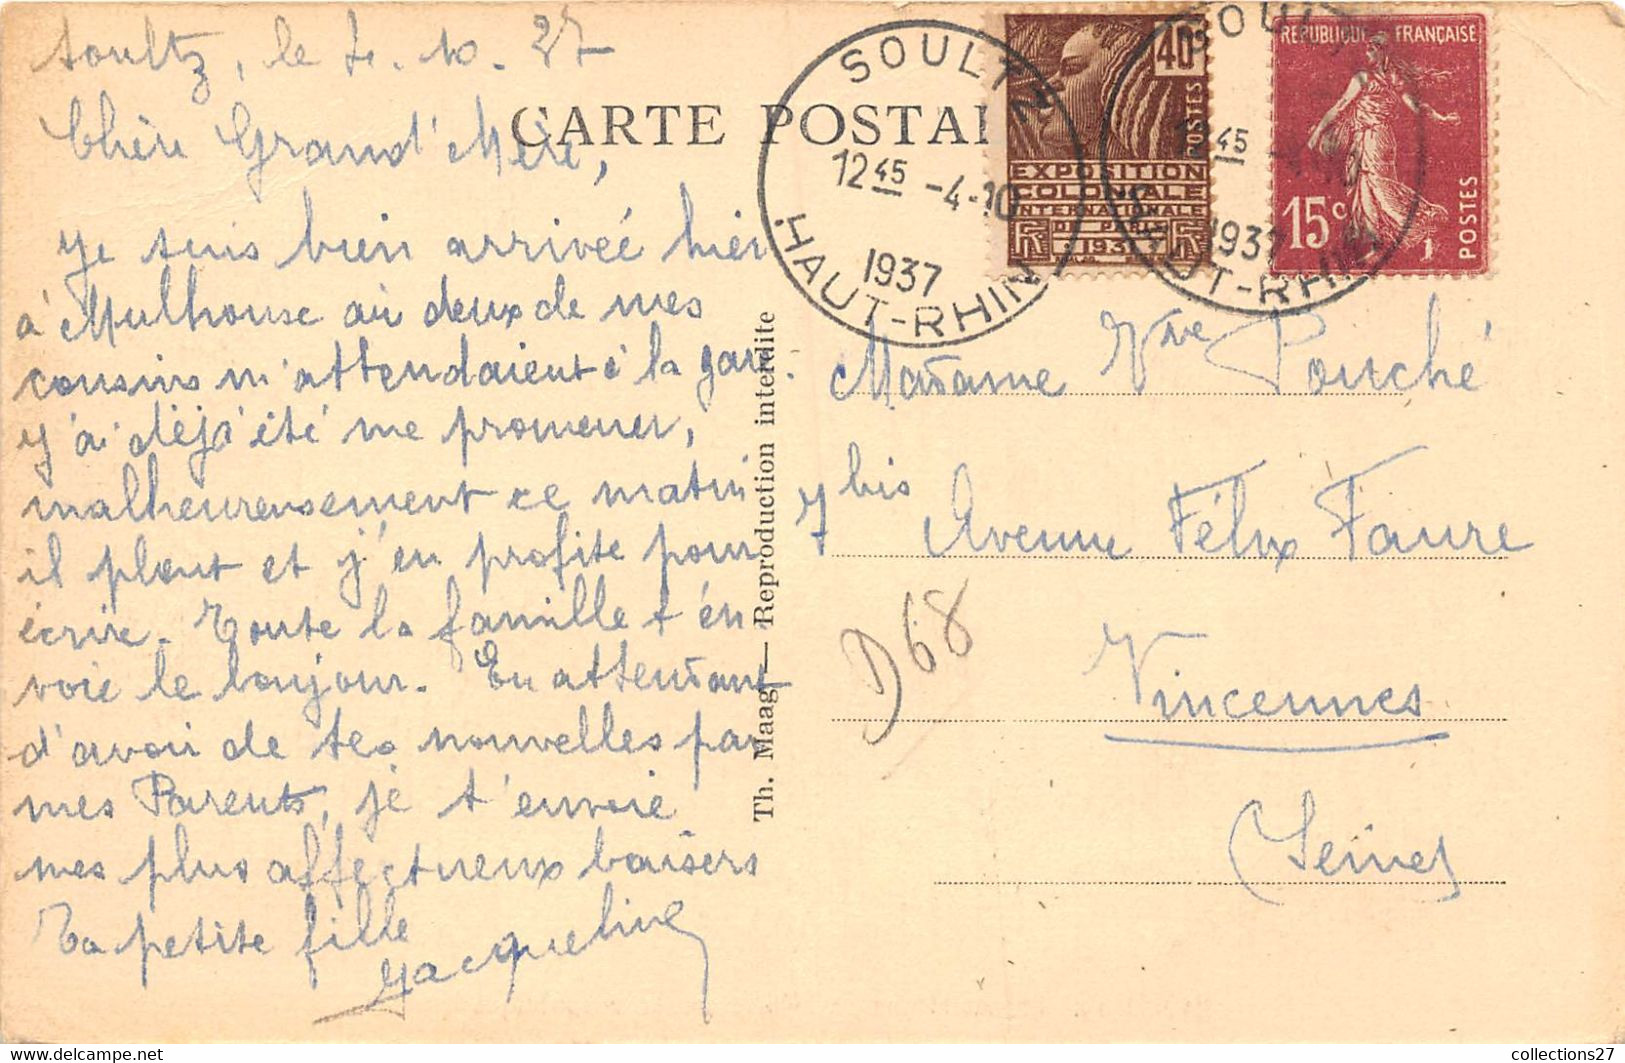 Soultz, le 4. 10. 37
Chère Grand'Mère,
Je suis bien arrivée hier
à Mulhouse où deux de mes
cousins m'attendaient à la gare.
J'ai déjà été me promener,
malheureusement ce matin
il pleut et j'en profite pour
écrire. Toute la famille t'en
voie le bonjour. En attendant
d'avoir de tes nouvelles par
mes Parents, je t'envoie
mes plus affectueux baisers
Ta petite fille
Jacqueline
CARTE POSTAL
Th. Maag — Reproduction interdite
SOULTZ
12 45 -4-10
1937
HAUT-RHIN
40c
POSTES
EXPOSITION
COLONIALE
INTERNATIONALE
DE PARIS
1931
SOULTZ
12 45 -4-10
1937
HAUT-RHIN
RÉPUBLIQUE FRANÇAISE
15c
POSTES
Madame Vve Pouché
7 bis Avenue Félix Faure
Vincennes
(Seine)
D68
collections27